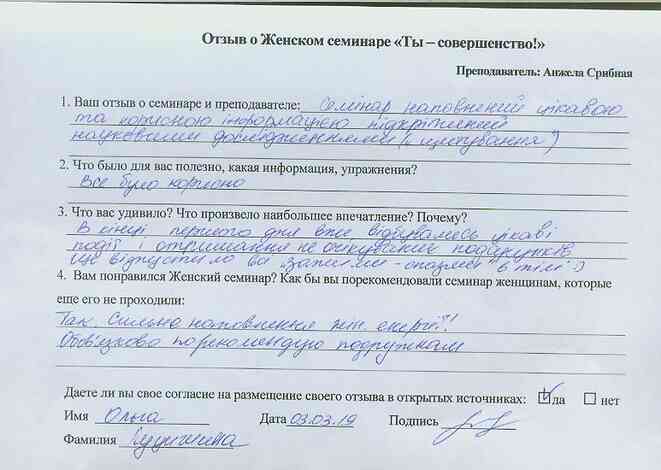 Отзыв о Женском семинаре «Ты – совершенство!»
Преподаватель: Анжела Срибная
1. Ваш отзыв о семинаре и преподавателе: Семінар наповнений цікавою
та корисною інформацією підкріплений
науковими дослідженнями (и цитування)
2. Что было для вас полезно, какая информация, упражнения?
Все було корисно
3. Что вас удивило? Что произвело наибольшее впечатление? Почему?
В кінці першого дня вже відбувались цікаві
події і отримання не очікуваних подарунків
ще відпустило всі "зажими - спазми" в тілі :)
4. Вам понравился Женский семинар? Как бы вы порекомендовали семинар женщинам, которые
еще его не проходили:
Так. Сильно наповнення жін. енергії!
Обов'язково порекомендую подружкам
Даете ли вы свое согласие на размещение своего отзыва в открытых источниках: да нет
Имя Ольга Дата 03.03.19 Подпись
Фамилия